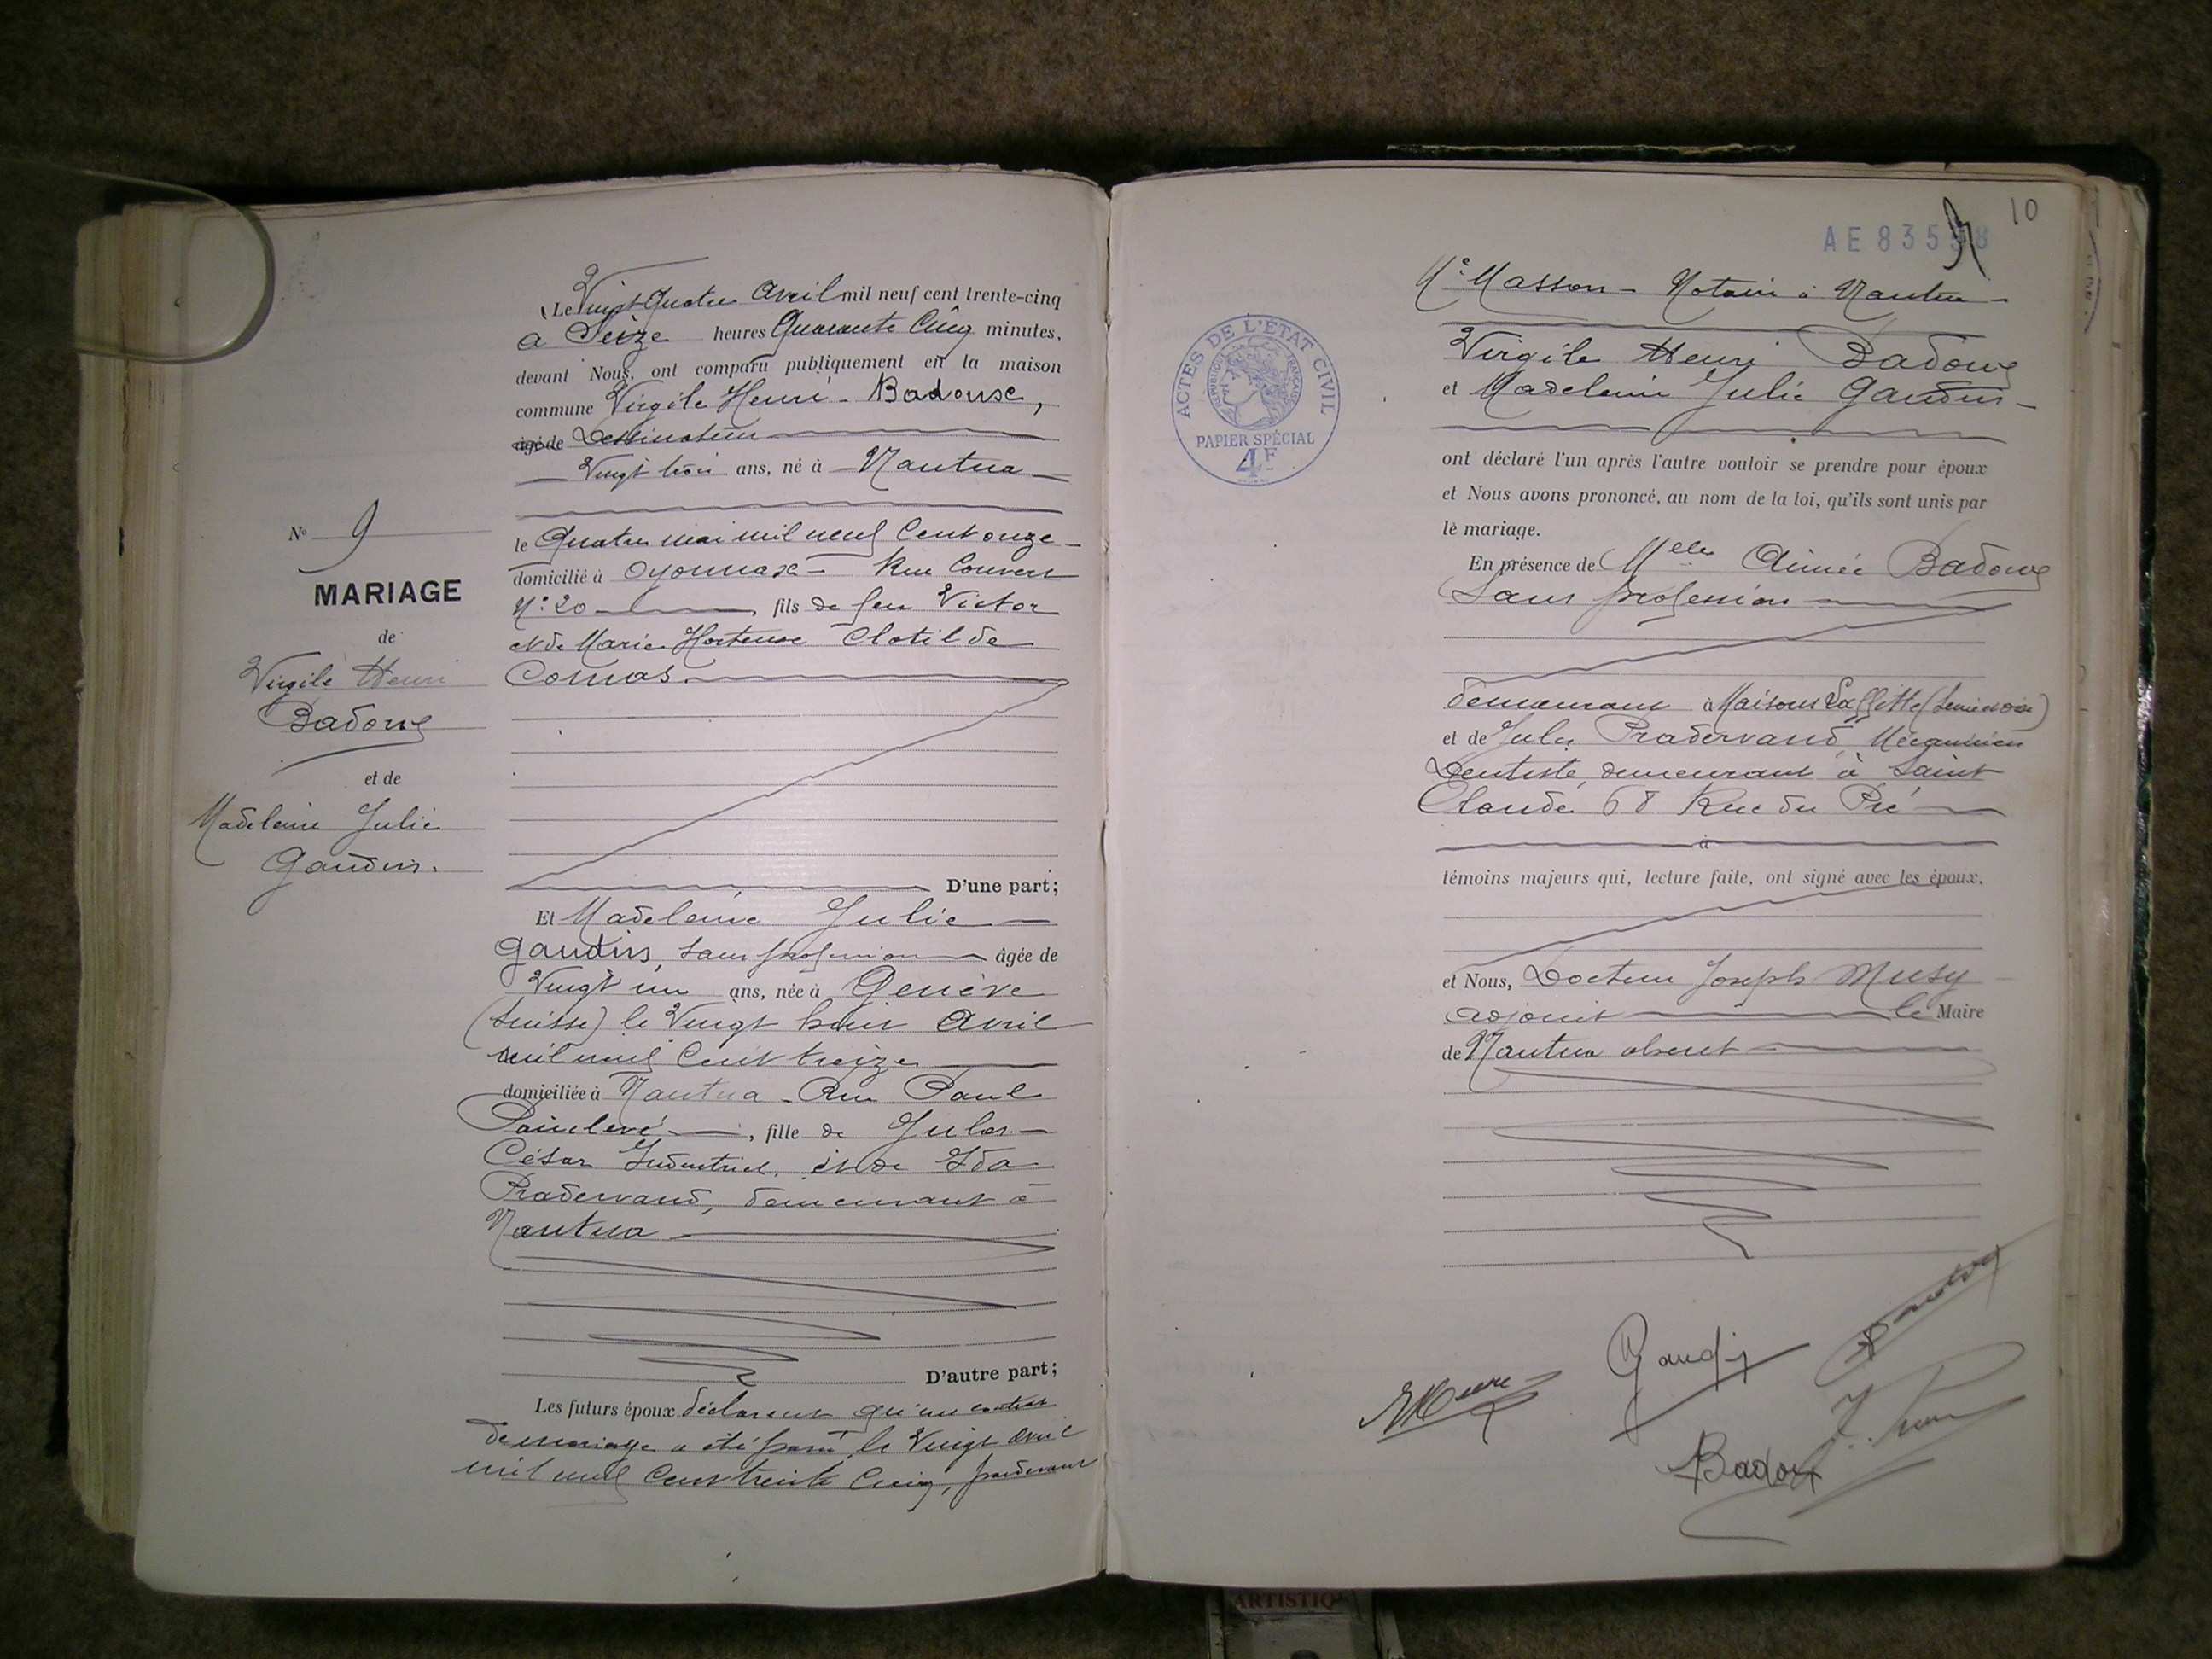 Le Vingt Quatre Avril mil neuf cent trente-cinq
a Seize heures Quarante Cinq minutes,
devant Nous, ont comparu publiquement en la maison
commune Virgile Henri - Badoux,
âgé de Dessinateur
Vingt trois ans, né à Nantua
le Quatre mai mil neuf Cent onze
domicilié à Oyonnax - Rue Convert
N° 20 fils de feu Victor
et de Marie Hortense Clotilde
Comas
D'une part;
N° 9
MARIAGE
de
Virgile Henri
Badoux
et de
Madeleine Julie
Gaudin.
Et Madeleine Julie
Gaudin, sans profession âgée de
Vingt un ans, née à Genève
(Suisse) le Vingt huit Avril
mil neuf Cent treize
domiciliée à Nantua - Rue Paul
Painlevé, fille de Jules
César Industriel, et de Ida
Pradervand, demeurant à
Nantua
D'autre part;
Les futurs époux déclarent qu'un contrat
de mariage a été passé le Vingt Avril
mil neuf Cent trente Cinq, pardevant
10
AE 835
Me Masson - Notaire à Nantua -
Virgile Henri Badoux
et Madeleine Julie Gaudin -
ont déclaré l'un après l'autre vouloir se prendre pour époux
et Nous avons prononcé, au nom de la loi, qu'ils sont unis par
le mariage.
En présence de Melle Aimée Badoux
Sans profession
demeurant à Maisons Laffitte (Seine et Oise)
et de Jules Pradervand, Mécanicien
Dentiste, demeurant à Saint
Claude 68 Rue du Pré
à
témoins majeurs qui, lecture faite, ont signé avec les époux,
et Nous, Docteur Joseph Musy
adjoint le Maire
de Nantua absent
ACTES DE L'ÉTAT CIVIL
RÉPUBLIQUE FRANÇAISE
PAPIER SPÉCIAL
4F
Gaudin
Badoux
ARTISTIQ